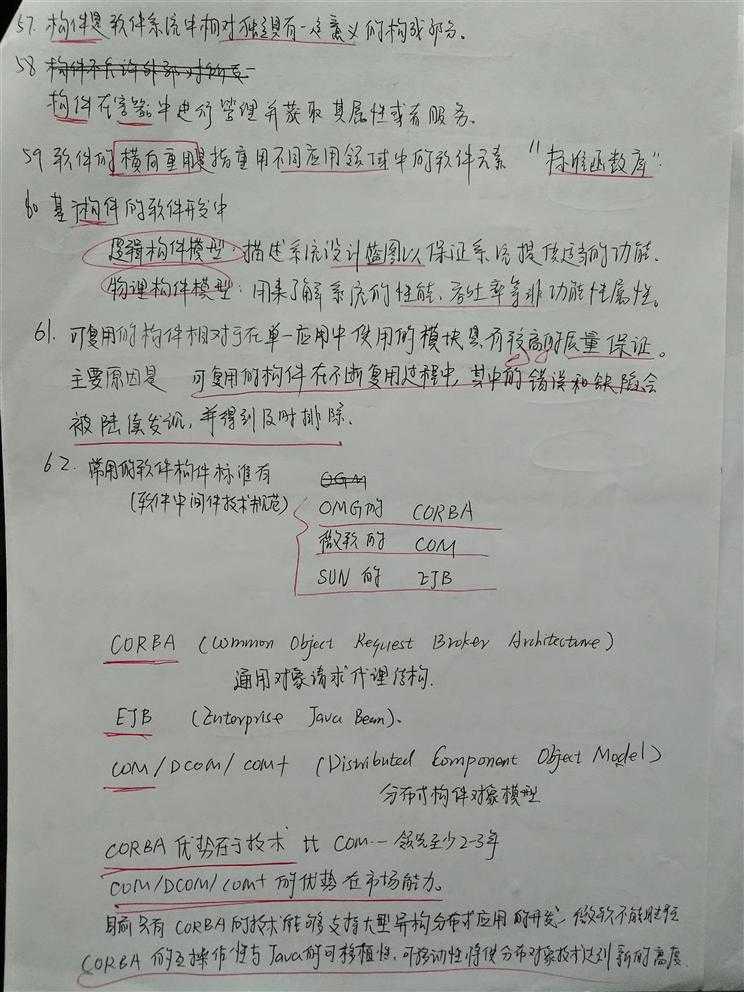 57. 构件是软件系统中相对独立具有一定意义的构成部分。
58 构件不允许外部对
构件在容器中进行管理并获取其属性或者服务。
59 软件的横向重用是指重用不同应用领域中的软件元素 "标准函数库".
60 基于构件的软件开发中
逻辑构件模型:描述系统设计蓝图以保证系统提供适当的功能.
物理构件模型:用来了解系统的性能、吞吐率等非功能性属性。
61. 可复用的构件相对于在单一应用中使用的模块具有较高的质量保证。
主要原因是 可复用的构件在不断复用过程中,其中的错误和缺陷会
被陆续发现,并得到及时排除.
62. 常用的软件构件标准有 OGM
(软件中间件技术规范)
OMG的 CORBA
微软的 COM
SUN的 EJB
CORBA (Common Object Request Broker Architecture)
通用对象请求代理结构.
EJB (Enterprise Java Bean).
COM/DCOM/COM+ (Distributed Component Object Model)
分布式构件对象模型
CORBA 优势在于技术 比 COM 领先至少2-3年
COM/DCOM/COM+ 的优势在市场能力。
目前只有 CORBA的技术能够支持大型异构分布式应用的开发,微软不能胜任
CORBA 的互操作性与Java的可移植性,可移动性将使分布对象技术达到新的高度.